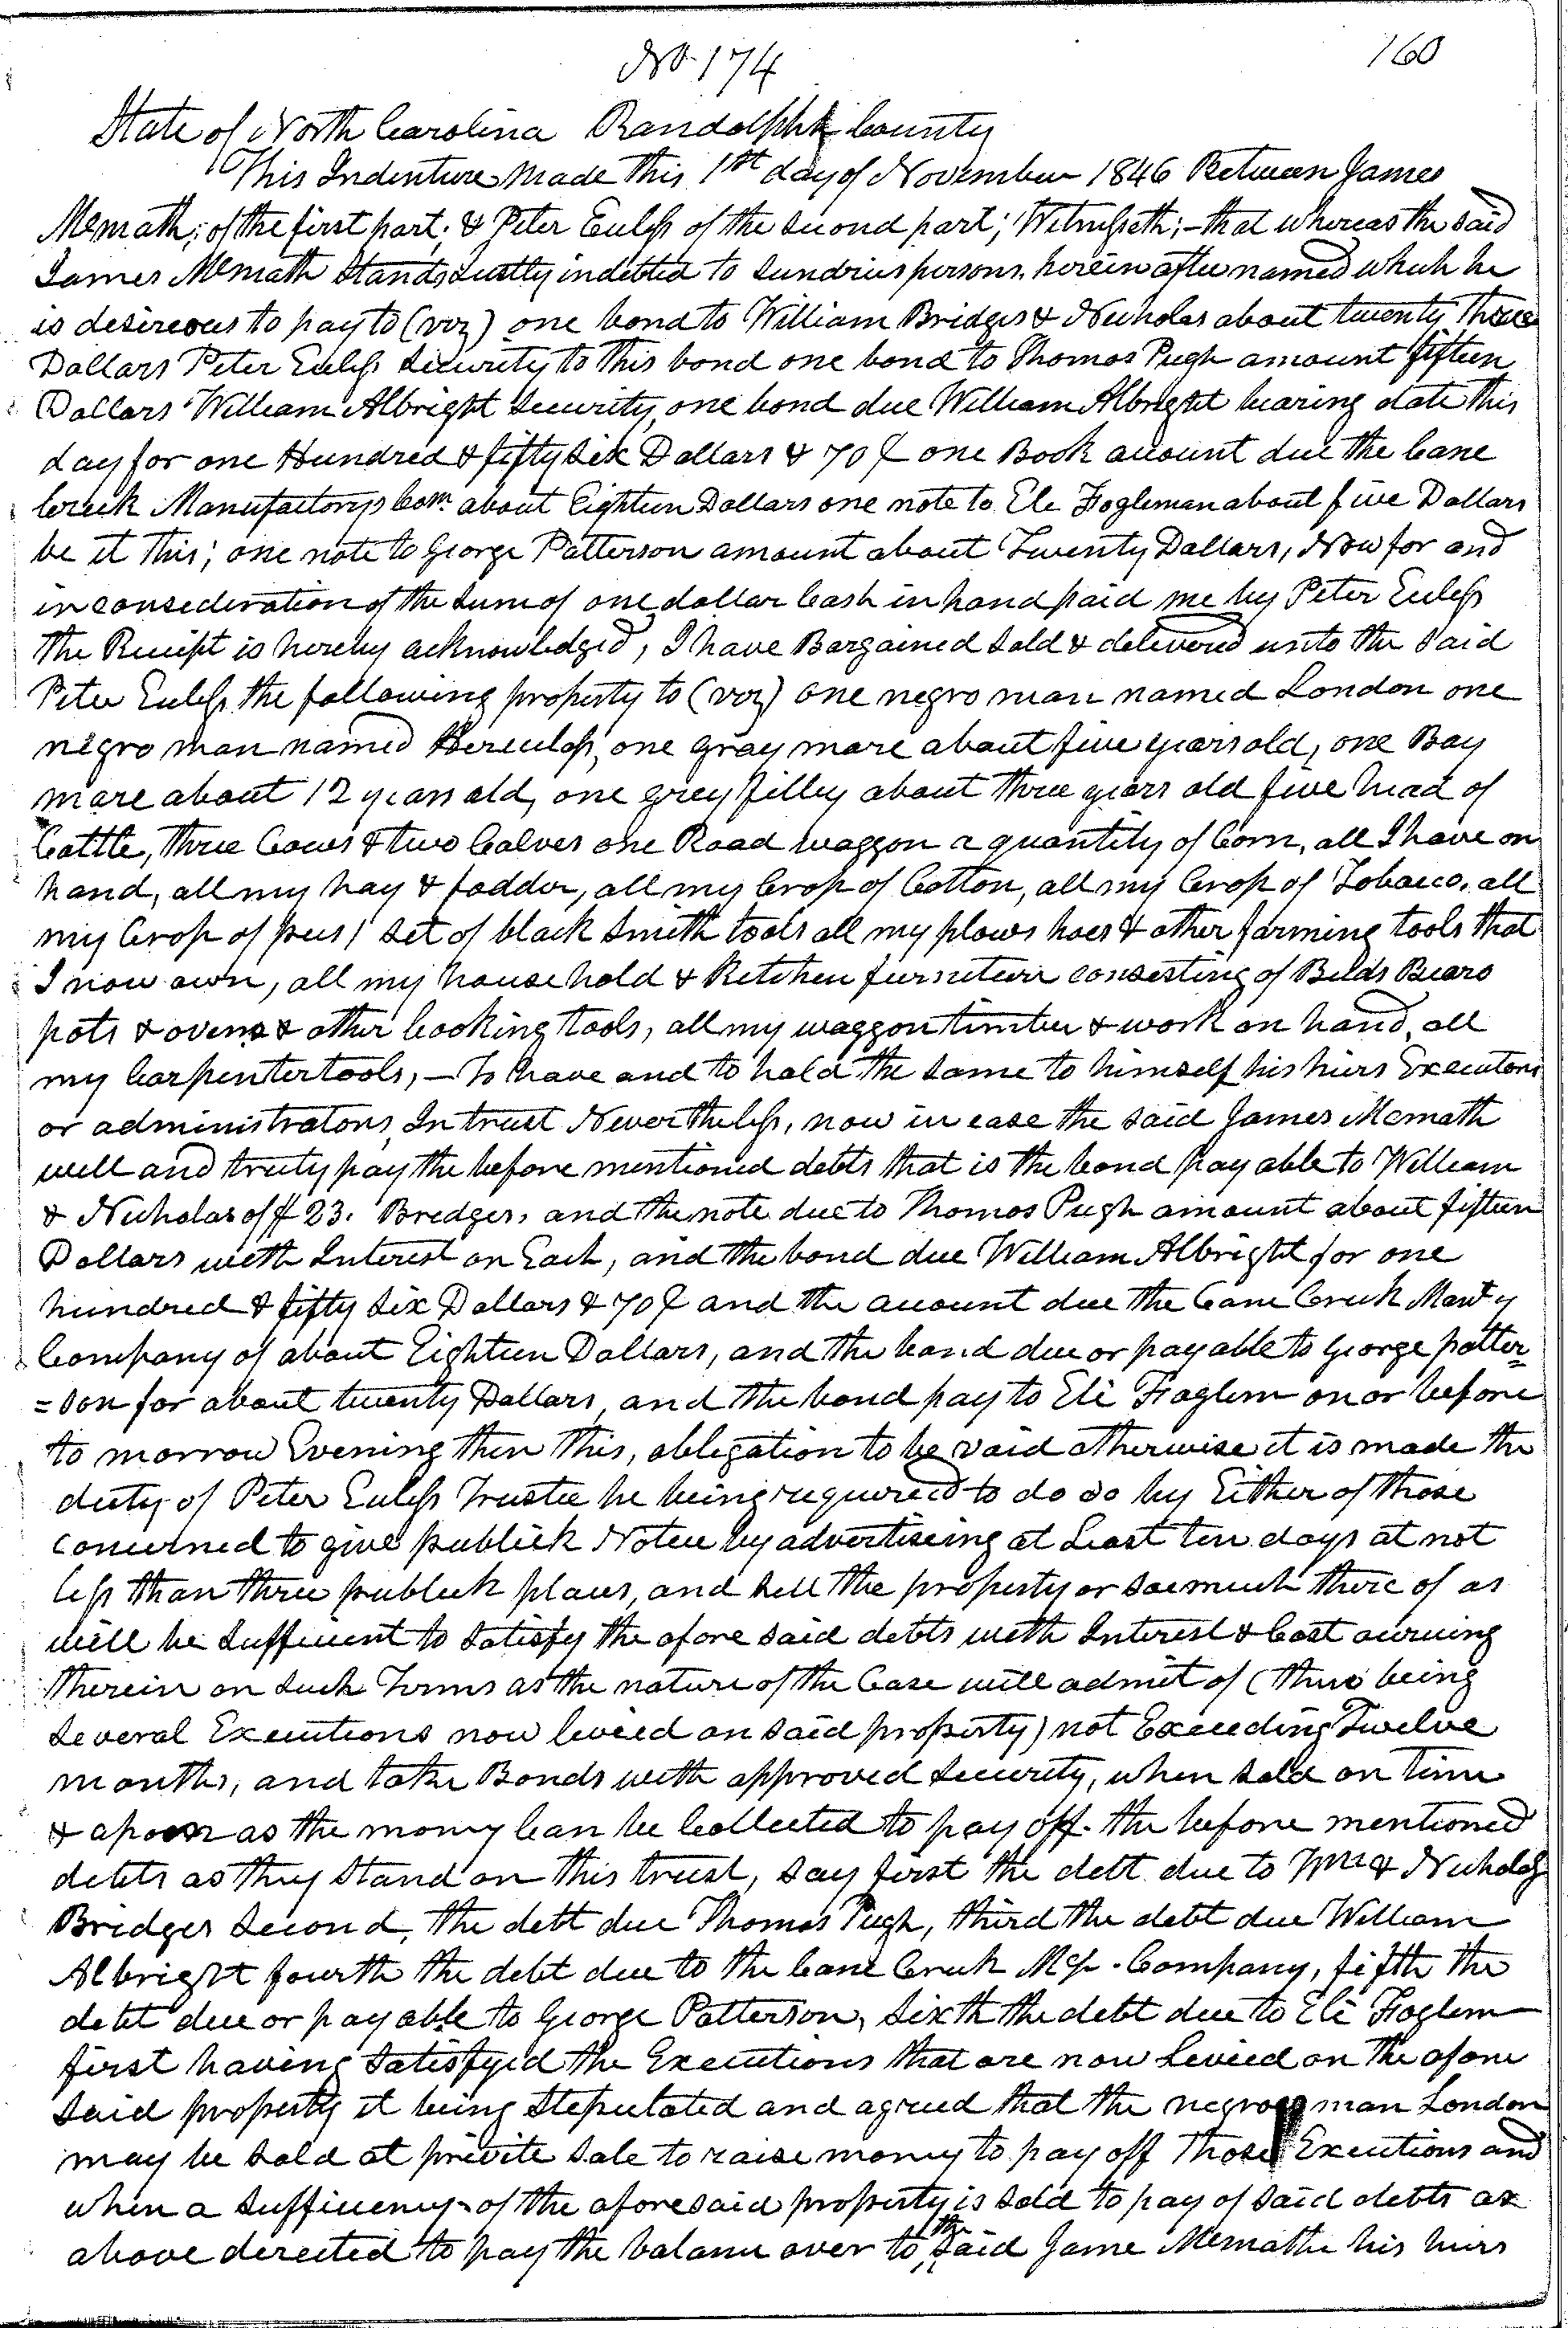 No. 174
160
State of North Carolina Randolph County
This Indenture made this 1st day of November 1846 Between James
Mcmath; of the first part; & Peter Euless of the second part; Witnesseth; - that whereas the said
James Mcmath stands justly indebted to sundries persons, herein after named which he
is desireous to pay to (viz) one bond to William Bridges & Nicholas about twenty three
Dollars Peter Euless security to this bond one bond to Thomas Pugh amount fifteen
Dollars William Albright Security, one bond due William Albright bearing date this
day for one Hundred & fifty six Dollars & 70 ¢ one Book account due the Cane
Creek Manufactory Com. about Eighteen Dollars one note to Eli Fogleman about five Dollars
be it this; one note to George Patterson amount about Twenty Dollars, Now for and
in consideration of the sum of one dollar Cash in hand paid me by Peter Euless
the Receipt is hereby acknowledged, I have Bargained sold & delivered unto the said
Peter Euless the following property to (viz) one negro man named London one
negro man named Herculess, one gray mare about five years old, one Bay
mare about 12 years old, one grey filley about three years old five head of
Cattle, three Cows & two Calves one Road waggon a quantity of Corn, all I have on
hand, all my hay & fodder, all my Crop of Cotton, all my Crop of Tobacco, all
my Crop of peas 1 set of black smith tools all my plows hoes & other farming tools that
I now own, all my house hold & Kitchen furniture consisting of Beds Bearo
pots & ovens & other Cooking tools, all my waggon timber & work on hand, all
my Carpenter tools, - To have and to hold the same to himself his heirs Executors
or administrators, In trust Nevertheless, now in case the said James Mcmath
well and truly pay the before mentioned debts that is the bond payable to William
& Nicholas of $ 23. Bredges, and the note due to Thomas Pugh amount about fifteen
Dollars with Interest on Each, and the bond due William Albright for one
hundred & fifty six Dollars & 70 ¢ and the account due the Cane Creek Manf y
Company of about Eighteen Dollars, and the bond due or payable to George patter=
=son for about twenty Dollars, and the bond pay to Eli Foglem on or before
to morrow Evening then this, obligation to be void otherwise it is made the
duty of Peter Euless Trustee he being required to do so by Either of those
concerned to give publick Notice by advertiseing at Least ten days at not
less than three publick places, and sell the property or soemuch there of as
will be sufficient to satisfy the afore said debts with Interest & Cost accruing
therein on such Terms as the nature of the Case will admit of (there being
several Executions now levied on said property) not Exceeding Twelve
months, and take Bonds with approved security, when sold on time
& as soon as the money Can be Collected to pay off. the before mentioned
debts as they stand on this trust, say first the debt due to Wm & Nicholas
Bridges second, the debt due Thomas Pugh, third the debt due William
Albright fourth the debt due to the Cane Creek Mfg. Company, fifth the
debt due or payable to George Patterson, sixth the debt due to Eli Foglem
first having satisfyed the Executions that are now Levied on the afore
said property it being stepulated and agreed that the negro man London
may be sold at privite sale to raise money to pay off those Executions and
when a sufficiency of the aforesaid property is sold to pay of said debts as
above derected to pay the balance over to the said Jame Mcmath his heirs